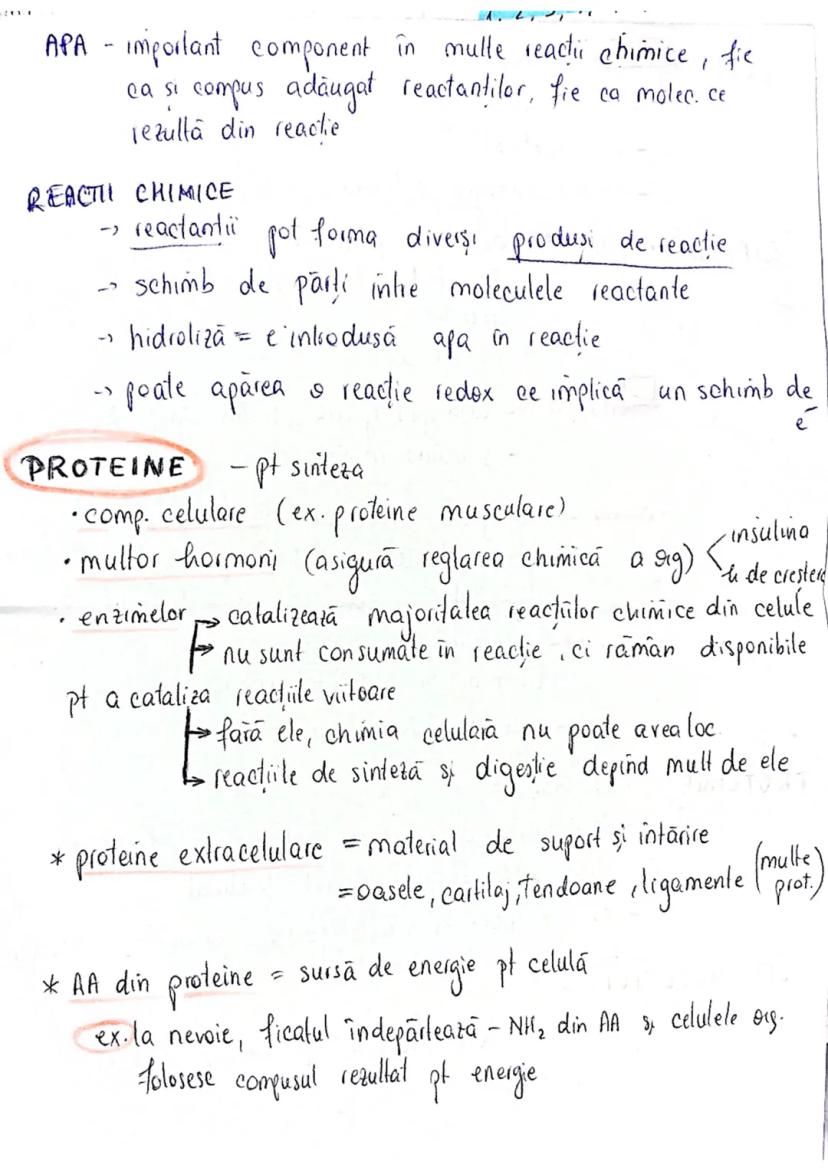 APA - important component în multe reactii chimice, fie
ca și compus adăugat reactanților, fie ca molec. ce
rezultă din reacție
REACTII CHIMICE
→ reactantii pot forma diverși produși de reacție
→ schimb de părți între moleculele reactante
→ hidroliză = e introdusă apa în reacție
→ poate apărea o reacție redox ce implică un schimb de
e⁻
PROTEINE - pt sinteza
• comp. celulare (ex. proteine musculare)
• multor hormoni (asigură reglarea chimică a org) insulina
h de creștere
• enzimelor → catalizează majoritatea reacțiilor chimice din celule
→ nu sunt consumate în reacție, ci rămân disponibile
pt a cataliza reacțiile viitoare
→ fără ele, chimia celulară nu poate avea loc
→ reacțiile de sinteză și digestie depind mult de ele
* proteine extracelulare = material de suport și întărire
= oasele, cartilaj, tendoane, ligamente (multe
prot.)
* AA din proteine = sursă de energie pt celulă
ex. la nevoie, ficatul îndepărtează - NH₂ din AA și celulele org.
folosesc compusul rezultat pt energie